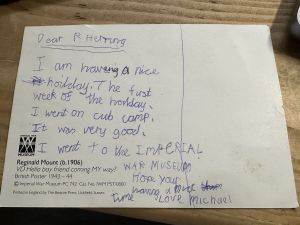 Dear R Herring
I am having a nice
holiday. The first
week of the holiday.
I went on cub camp.
It was very good.
I went to the IMPERIAL
WAR MUSEUM
Hope your
having a
time Love Michael
Reginald Mount (b.1906)
VD Hello boy friend coming MY way?
British Poster 1943 – 44
© Imperial War Museum PC 742 Cat. No.
Printed in England by The Beacon Press,